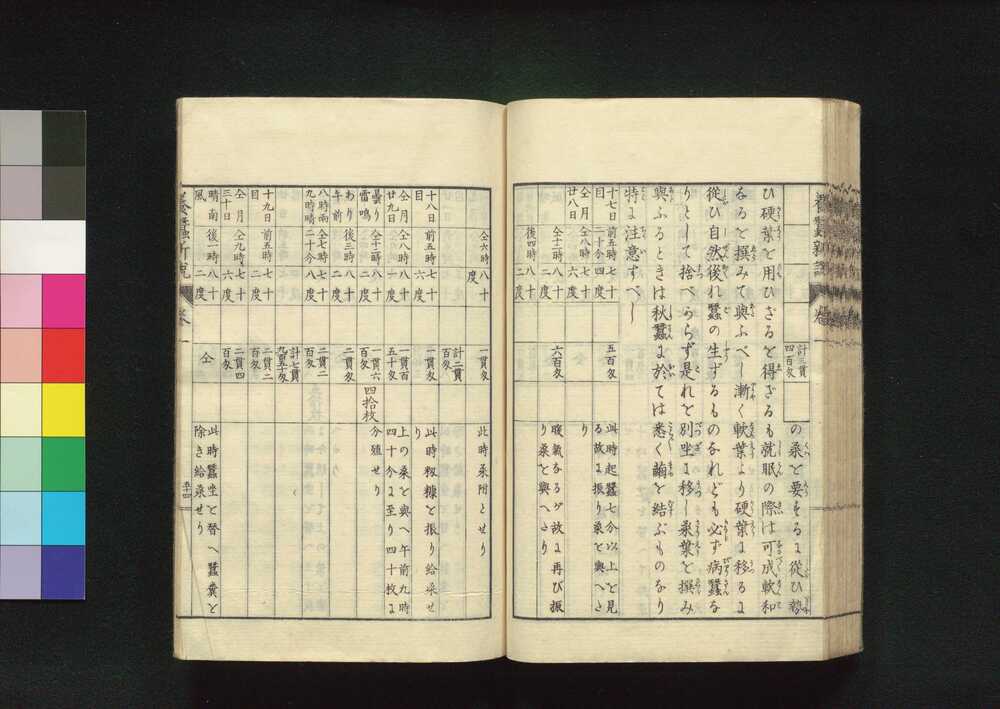 計三貫
四百匁
の桒を要するに從ひ勢
ひ硬葉を用ひざるを得ざるも就眠の際は可成軟和
なると撰みて與ふべし漸く軟葉より硬葉に移るに
從ひ自然後れ蠶の生ずるものなれども必ず病蠶な
りとして捨べからず是れを別坐に移し桒葉を撰み
與ふるときは秋蠶に於ては悉く繭を結ぶものなり
特に注意すべし
十七日 前五時 七十
目 二十分 四度
五百匁
此時起蠶七分以上を見
る故に振り桒を與へたり
仝月 仝八時 七十
廿八日 六度
仝十二時 八十
二度
六百匁
暖氣なるが故に再び振
り桒を與へたり
後四時 八十
二度
仝六時 八十
度
一貫匁
此時桒附とせり
十八日 前五時 七十
目 六度
一貫匁
計二貫
百匁
此時籾糠を振り給桒せり
仝月 仝八時 八十
廿九日 一度
一貫百
五十匁
上の桒を與へ午前九時
曇り 仝十一時 八十
雷鳴 二度
一貫六
百匁
四拾枚
四十分に至り四十枚に
分殖せり
あり 後三時 八十
午前 二度
一貫匁
八時雨 仝七時 八十
九時晴 二十分 度
二貫二
百匁
計七貫
九百五十匁
十九日 前五時 七十
目 二度
二貫二
百匁
仝月 仝九時 七十
三十日 六度
二貫四
百匁
晴南 後一時 八十
風 二度
仝
此時蠶坐を替へ蠶糞を
除き給桒せり
養蠶新說
卷一
五十四